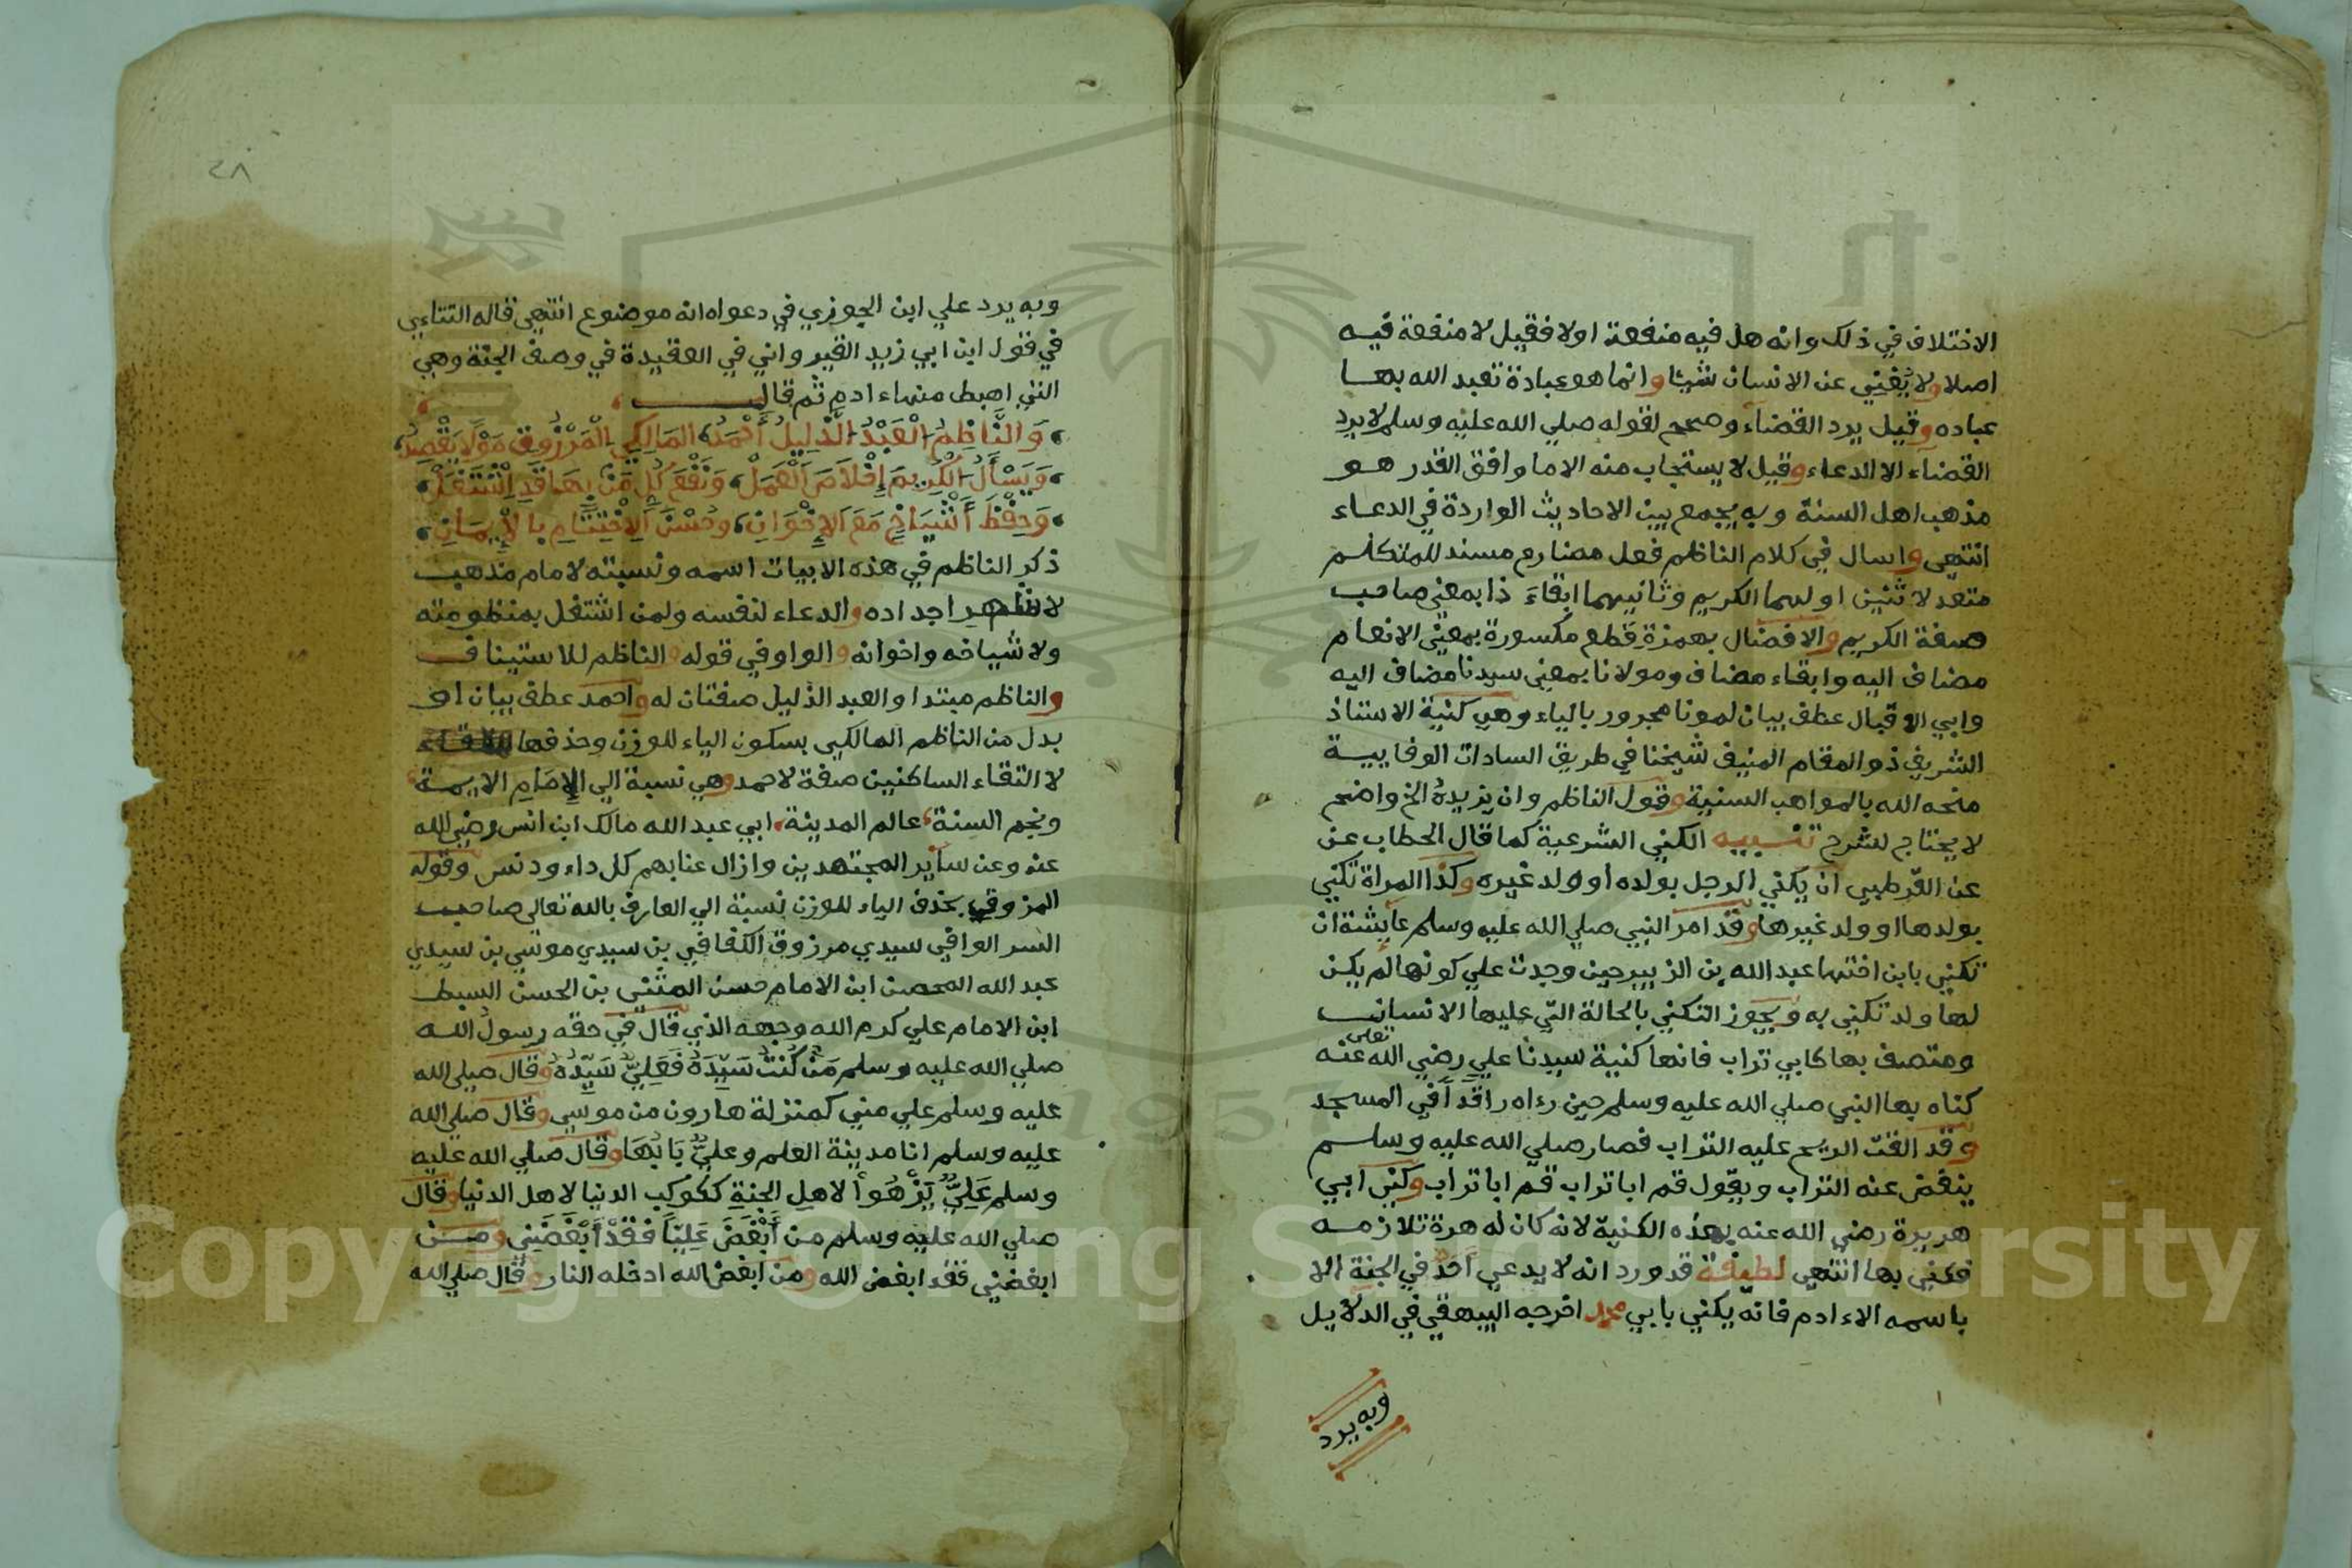 الاختلاف في ذلك وانه هل فيه منفعة اولا فقيل لا منفعة فيه
اصلا ولا يُغْنِي عن الانسان شيئا وانما هو عبادة تعبد الله بها
عباده وقيل يرد القضاء وصحح لقوله صلي الله عليه وسلم لا يرد
القضاء الا الدعاء وقيل لا يستجاب منه الا ما وافق القدر هو
مذهب اهل السنة وبه يجمع بين الاحاديث الواردة في الدعاء
انتهى واسال في كلام الناظم فعل مضارع مسند للمتكلم
متعد لاثنين اولهما الكريم وثانيهما ابقاءَ ذا بمعنى صاحب
صفة الكريم والافضال بهمزة قطع مكسورة بمعنى الانعام
مضاف اليه وابقاء مضاف ومولانا بمعنى سيدنا مضاف اليه
وابي الاقبال عطف بيان لمونا مجرور بالياء وهي كنية الاستاذ
الشريف ذو المقام المنيف شيخنا في طريق السادات الوفاييـة
منحه الله بالمواهب السنية وقول الناظم وان يزيدهُ الخ واضح
لا يحتاج لشرح تنبيه الكني الشرعية كما قال الحطاب عن
عن القرطبي ان يكني الرجل بولده أو ولد غيره وكذا المراة تكني
بولدها او ولد غيرها وقد امر النبي صلي الله عليه وسلم عايشة ان
تكني بابن اختها عبد الله بن الزبير حين وجدت علي كونها لم يكن
لها ولد تكني به ويجوز التكني بالحالة التي عليها الانسان
ومتصف بها كابي تراب فانها كنية سيدنا علي رضي الله تعلى عنه
كناه بها النبي صلي الله عليه وسلم حين رءاه راقدا في المسجد
وقد القت الريح عليه التراب فصار صلي الله عليه وسلم
ينفض عنه التراب ويقول قم ابا تراب قم ابا تراب وكني ابي
هريرة رضي الله عنه بهذه الكنية لانه كان له هرة تلازمه
فكني بها انتهى لطيفة قد ورد انه لا يدعي احد في الجنة الا
باسمه الا ءادم فانه يكني بابي محمد اخرجه البيهقي في الدلايل
وبه يرد
٤٨
وبه يرد علي ابن الجوزي في دعواه انه موضوع انتهى قاله التتاءي
في قول ابن ابي زيد القيرواني في العقيدة في وصف الجنة وهي
التي اهبط منها ءادم ثم قال
وَالنَّاظِمُ الْعَبْدُ الذَّلِيلُ أَحْمَدُ المَالِكِي الْمَرْزُوقِ مَوْلًا يَقْصِدُ
وَيَسْأَلُ الكَرِيمَ إِخْلَاصَ الْعَمَلْ وَنَفْعَ كُلِّ مَنْ بِهَا قَدِ اشْتَغَلْ
وَحِفْظَ أَشْيَاخِي مَعَ الإِخْوَانِ وحُسْنَ الِاخْتِتَامِ بالْإِيمَانِ
ذكر الناظم في هذه الابيات اسمه ونسبته لامام مذهب
اجداده والدعاء لنفسه ولمن اشتغل بمنظومته
ولاشياخه واخوانه والواو في قوله والناظم للاستيناف
والناظم مبتدا والعبد الذليل صفتان له واحمد عطف بيان او
بدل من الناظم المالكي بسكون الياء للوزن وحذفها
لالتقاء الساكنين صفة لاحمد وهي نسبة الي الإمَامِ الايمة
ونجم السنة عالم المدينة ابي عبد الله مالك ابن انس رضي الله
عنه وعن ساير المجتهدين وازال عنا بهم كل داء ودنس وقوله
المرزوقي بحذف الياء للوزن نسبة الي العارف بالله تعالى صاحب
السر الوافي سيدي مرزوق الكفافي بن سيدي موسي بن سيدي
عبد الله المحصن ابن الامام حسن المثنى بن الحسن السبط
ابن الامام علي كرم الله وجهه الذي قال في حقه رسول الله
صلي الله عليه وسلم مَنْ كُنْتُ سَيِّدَهُ فَعَلِيٌّ سَيِّدُهُ وقال صلي الله
عليه وسلم علي مني كمنزلة هارون من موسي وقال صلي الله
عليه وسلم انا مدينة العلم وعليٌّ بَابُهَا وقال صلي الله عليه
وسلم عَلِيٌّ يَزْهُوا لاهلِ الجنةِ ككوكب الدنيا لاهل الدنيا وقال
صلي الله عليه وسلم من أَبْغَضَ عَلِيّاً فَقَدْ أَبْغَضَنِي ومن
ابغضني فقد ابغض الله ومن ابغض الله ادخله النار وقال صلي الله
Copyright © King Saud University
1957